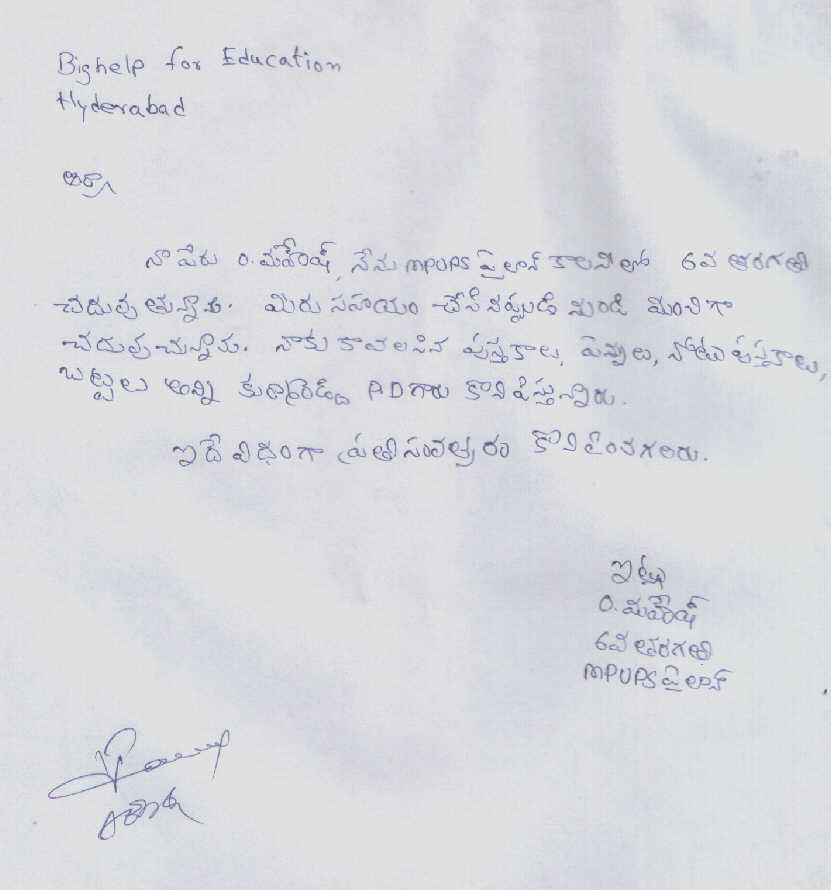 Bighelp for Education
Hyderabad
ఆర్యా
నా పేరు O. మహేష్, నేను MPUPS పైలాన్ కాలనీలో 6వ తరగతి
చదువుతున్నాను. మీరు సహయం చేసినప్పటి నుండి మంచిగా
చదువుచున్నాను. నాకు కావలసిన పుస్తకాలు, పెన్నులు, నోటు పుస్తకాలు,
బట్టలు అన్ని AD గారు కొనిపిస్తున్నారు.
ఇదే విధంగా ప్రతి సంవత్సరం కొనిపించగలరు.
ఇట్లు
O. మహేష్
6వ తరగతి
MPUPS పైలాన్